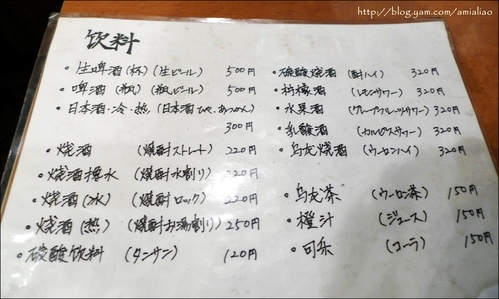 http://blog.yam.com/amialiao
饮料
・生啤酒(杯)(生ビール) 500円
・啤酒(瓶)(瓶ビール) 500円
・日本酒・冷・热(日本酒ひや、あつかん)
300円
・烧酒 (焼酎ストレート) 220円
・烧酒搀水 (焼酎水割り) 220円
・烧酒(冰) (焼酎ロック) 220円
・烧酒(热) (焼酎お湯割り) 250円
・碳酸饮料 (タンサン) 120円
・碳酸烧酒 (酎ハイ) 320円
・柠檬酒 (レモンサワー) 320円
・水果酒 (グレープフルーツサワー) 320円
・乳酸酒 (カルピスサワー) 320円
・乌龙烧酒 (ウーロンハイ) 320円
・乌龙茶 (ウーロン茶) 150円
・橙汁 (ジュース) 150円
・可乐 (コーラ) 150円